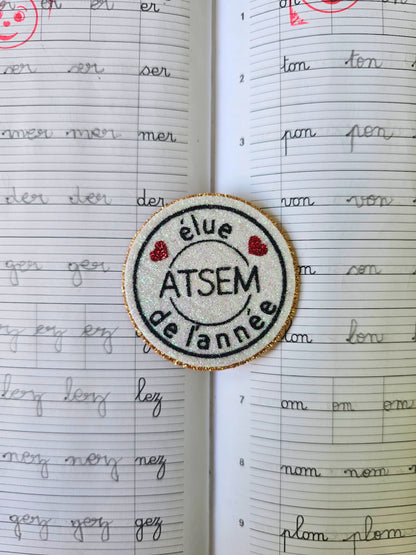 er er er er
ser ser ser
mer mer mer
der der der
ger ger
ez ey ez
lez lez lez
nez nez nez
gez gez gez
élue
ATSEM
de l'année
on on
1 ton ton ton
3 pon pon pon
von von von
son
lon lon
7 om om om
8 nom nom nom
9 plom plom